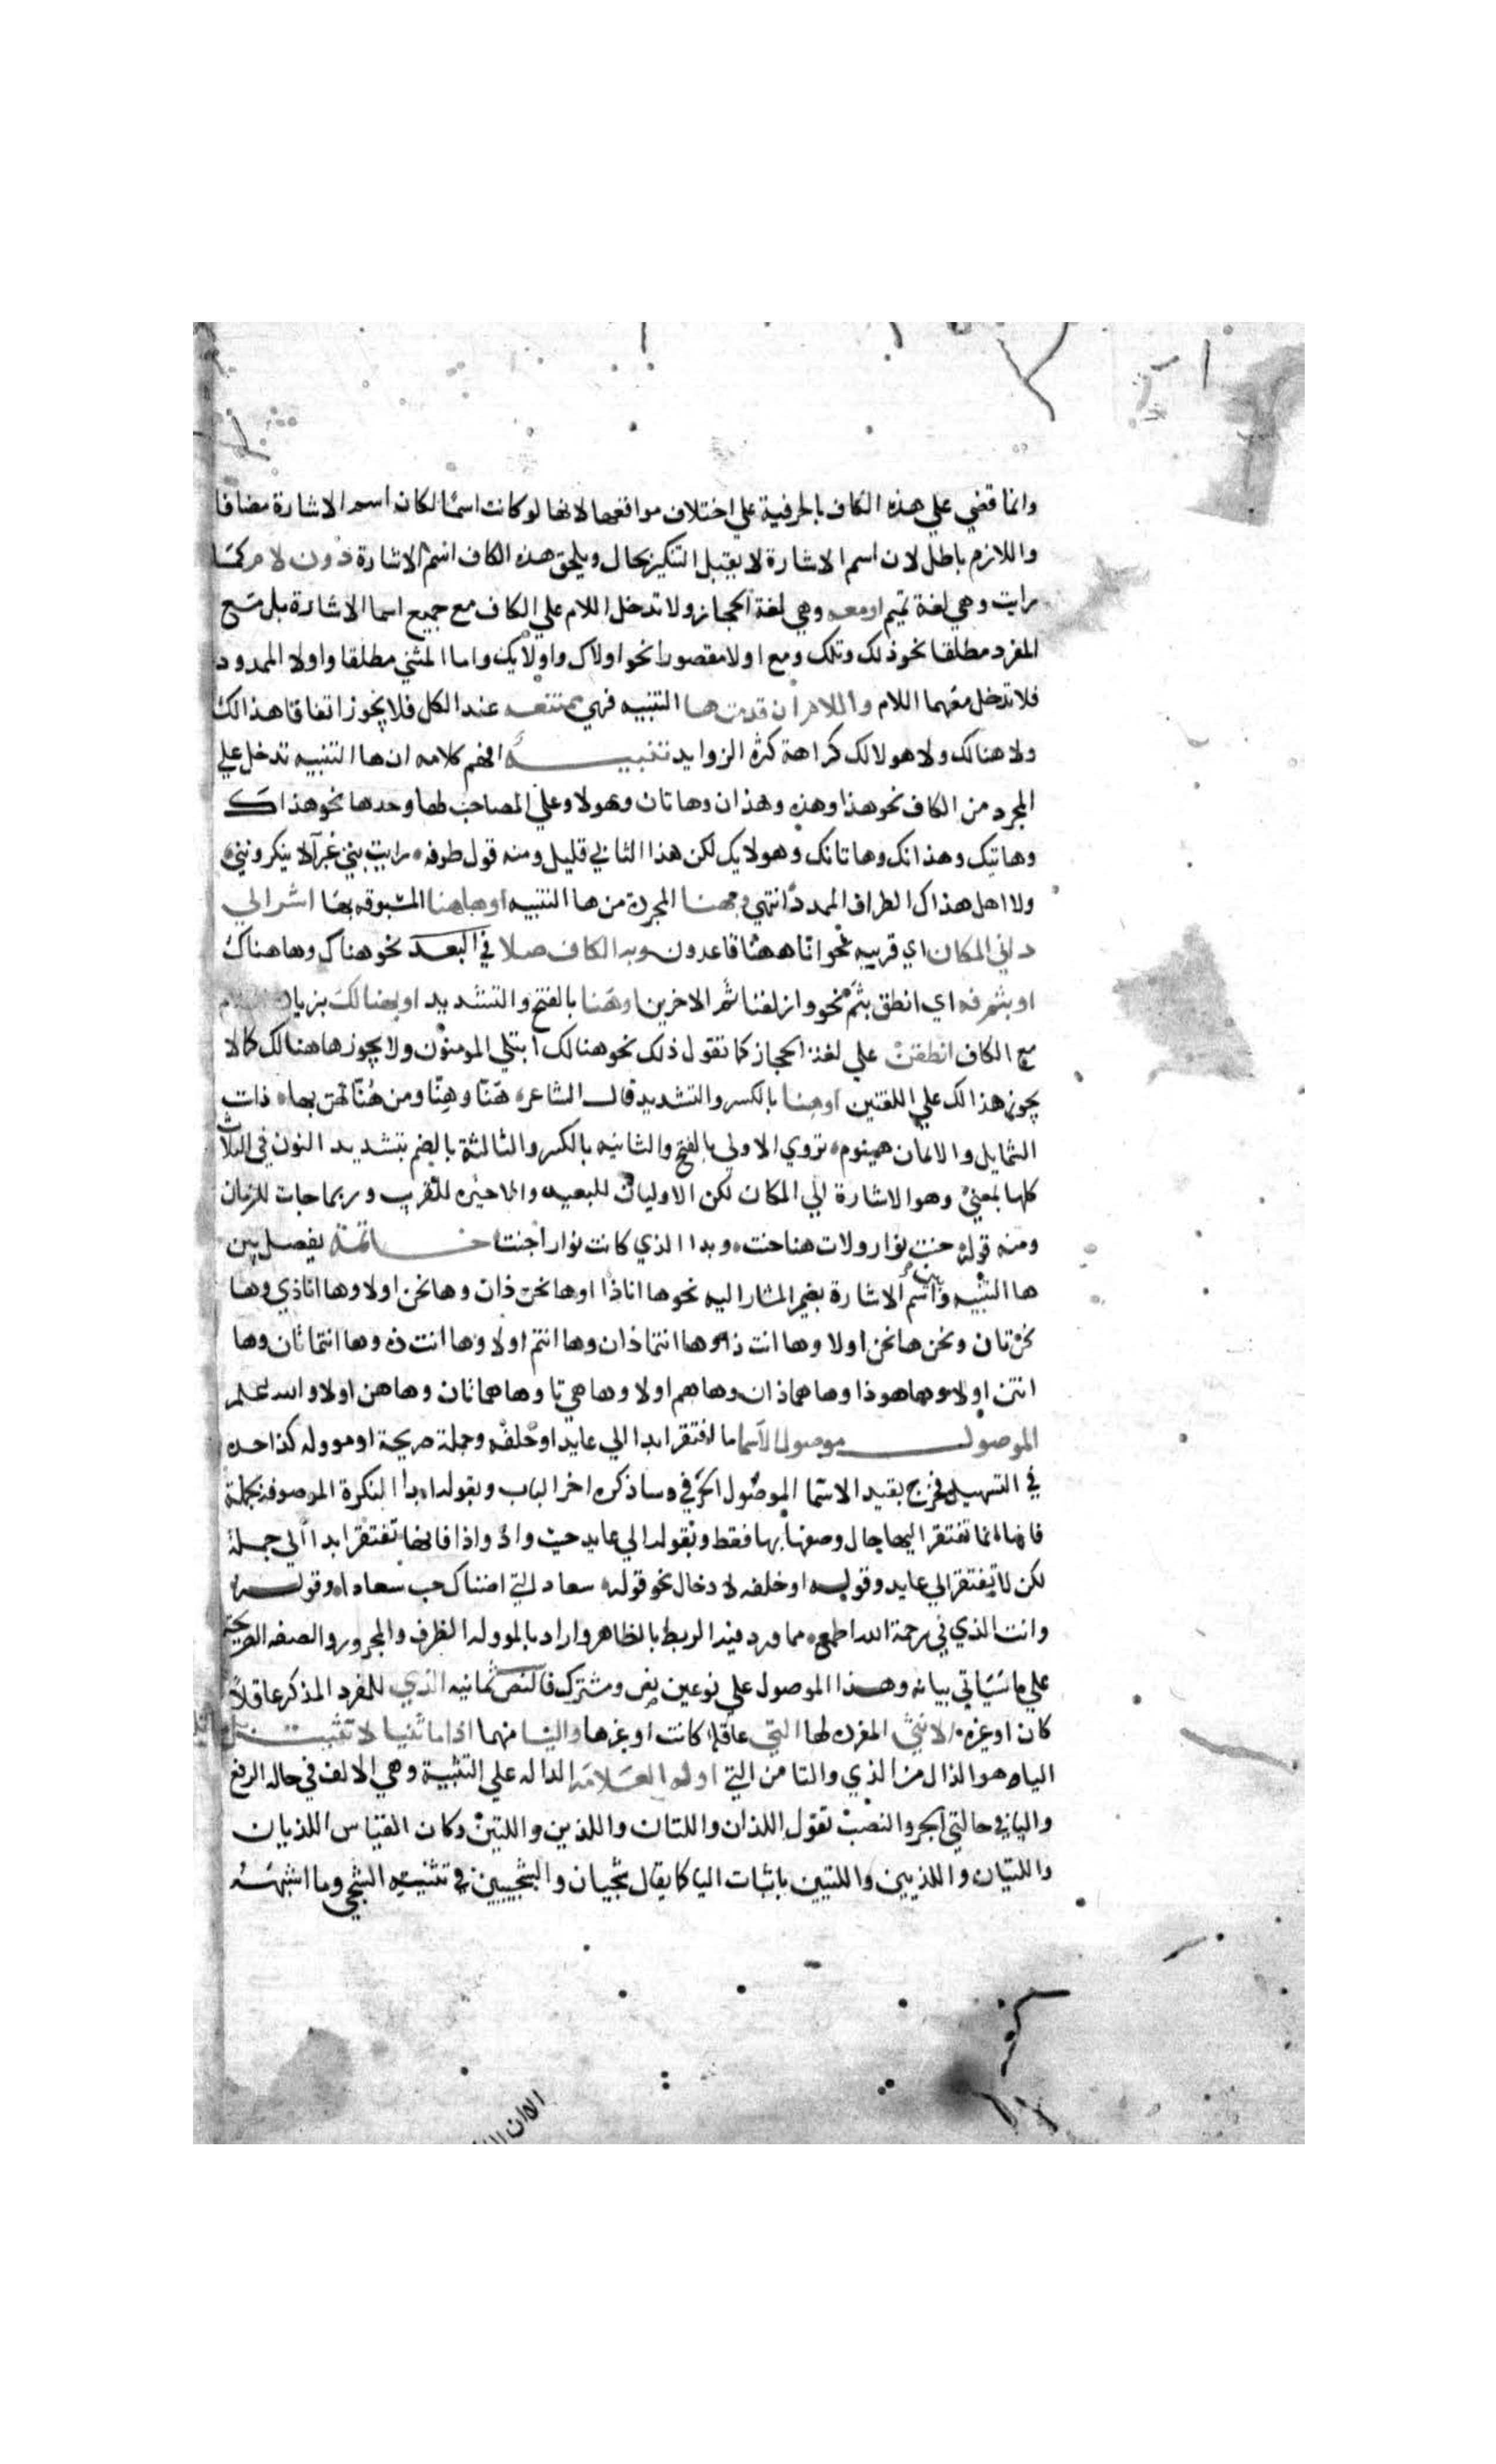 وانما قضي علي هذه الكاف بالحرفية علي اختلاف مواقعها لانها لو كانت اسمًا لكان اسم الاشارة مضافا
واللازم باطل لان اسم الاشارة لا يقبل التنكير بحال ويلحق هذه الكاف اسم الاشارة دون لام كما
رايت وهي لغة تميم او معه وهي لغة الحجاز ولا تدخل اللام علي الكاف مع جميع اسما الاشارة بل مع
المفرد مطلقا نحو ذلك وتلك ومع اولا مقصورا نحو اولاك واولايك واما المثني مطلقا واولا الممدود
فلا تدخل معهما اللام واللام ان قدمت ها التنبيه فهي ممتنعه عند الكل فلا يجوز اتفاقا هذالك
ولا هنالك ولا هولالك كراهة كثرة الزوايد تنبيــه افهم كلامه ان ها التنبيه تدخل علي
المجرد من الكاف نحو هذا وهذه وهذان وهاتان وهولا وعلي المصاحب لها وحدها نحو هذاك
وهاتيك وهذانك وهاتانك وهولايك لكن هذا الثاني قليل ومنه قول طرفه رايت بني غبرآ لا ينكرونني
ولا اهل هذاك الطراف الممدد انتهي وبهنا المجردة من ها التنبيه او هاهنا المسبوقه بها اشر الي
داني المكان اي قريبه نحو انا ههنا قاعدون وبه الكاف صلا في البعد نحو هناك وهاهناك
او بثم فه اي انطق بثَمَّ نحو وازلفنا ثم الاخرين او هنا بالفتح والتشديد او بهنالك بزيادة اللام
مع الكاف انطقن علي لغة الحجاز كما تقول ذلك نحو هنالك ابتلي المومنون ولا يجوز هاهنالك كما لا
يجوز هذالك علي اللغتين او هِنا بالكسر والتشديد قال الشاعر هَنّا وهِنّا ومن هُنّا لهن بها ذات
الشمايل والايمان هينوم تروي الاولي بالفتح والثانيه بالكسر والثالثة بالضم بتشديد النون في الثلاث
كلها بمعني وهو الاشارة الي المكان لكن الاوليان للبعيد والاخيره للقريب وربما جات للزمان
ومنه قوله حنت نوار ولات هنا حنت وبدا الذي كانت نوار اجنت خــاتمة يفصل بين
ها التنبيه وبين اسم الاشارة بضمير المشار اليه نحو ها اناذا او ها نحن ذان وها نحن اولا وها اناذي وها
نحن تان ونحن ها نحن اولا وها انت ذا وها انتما ذان وها انتم اولا وها انت ذه وها انتما تان وها
انتن اولا وها هو ذا وها هما ذان وها هم اولا وها هي تا وها هما تان وها هن اولا والله اعلم
الموصولــ موصول الاسما ما افتقر ابدا الي عايد او خلفه وجملة صريحة او مووله كذا حده
في التسهيل فخرج بقيد الاسما الموصول الحرفي وساذكره اخر الباب وبقوله ابدا النكرة الموصوفه بجملة
فانها انما تفتقر اليها حال وصفها بها فقط وبقوله الي عايد حيث واذ واذا فانها تفتقر ابدا الي جملة
لكن لا يفتقر الي عايد وقوله او خلفه لادخال نحو قوله سعاد التي اضناك حب سعادا وقوله
وانت الذي في رحمة الله اطمع مما ورد فيه الربط بالظاهر واراد بالمووله الظرف والمجرور والصفه الصريحة
علي ما سياتي بيانه وهذا الموصول علي نوعين نص ومشترك فالنص ثمانيه الذي للمفرد المذكر عاقلا
كان او غيره الانثي المفرده لها التي عاقلة كانت او غيرها واليا منهما اذا ما ثنيا لا تثبت بل ما تليه
الياء وهو الذال من الذي والتا من التي اوله العلامه الداله علي التثنية وهي الالف في حاله الرفع
واليا في حالتي الجر والنصب تقول اللذان واللتان واللذين واللتين وكان القياس اللذيان
واللتيان واللذيين واللتيين باثبات اليا كما يقال الشجيان والشجيين في تثنيه الشجي وما اشبهه